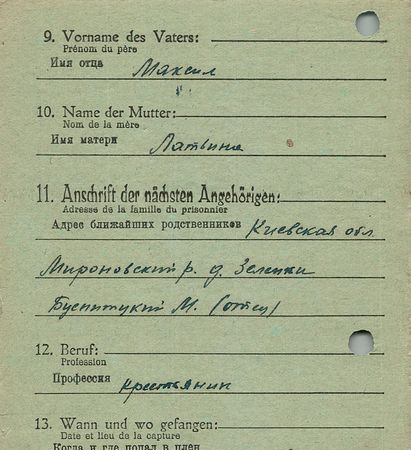 9. Vorname des Vaters:
Prénom du père
Имя отца Максим
10. Name der Mutter:
Nom de la mère
Имя матери
11. Anschrift der nächsten Angehörigen:
Adresse de la famille du prisonnier
Адрес ближайших родственников Киевская обл.
Мироновский р. д. Зеленки
М. (отец)
12. Beruf:
Profession
Профессия крестьянин
13. Wann und wo gefangen:
Date et lieu de la capture
Когда и где попал в плен